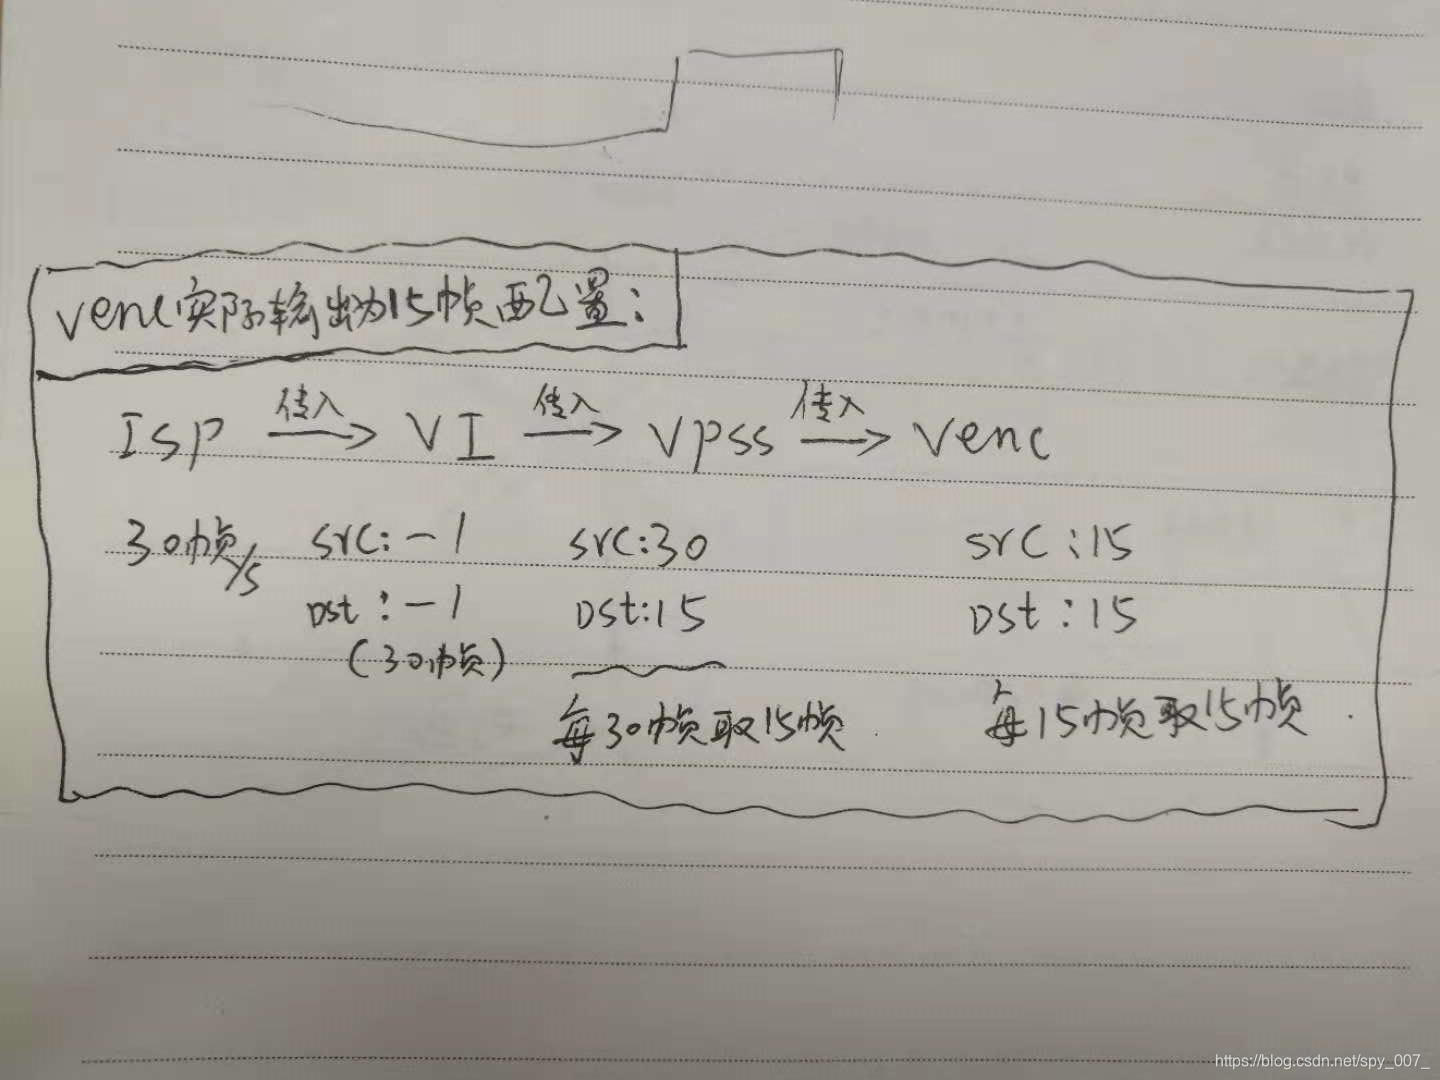 venc实际输出为15帧配置:
ISP 传入 VI 传入 VPSS 传入 Venc
30帧/s src:-1 src:30 src:15
Dst:-1 Dst:15 Dst:15
(30帧)
每30帧取15帧. 每15帧取15帧.
https://blog.csdn.net/spy_007_